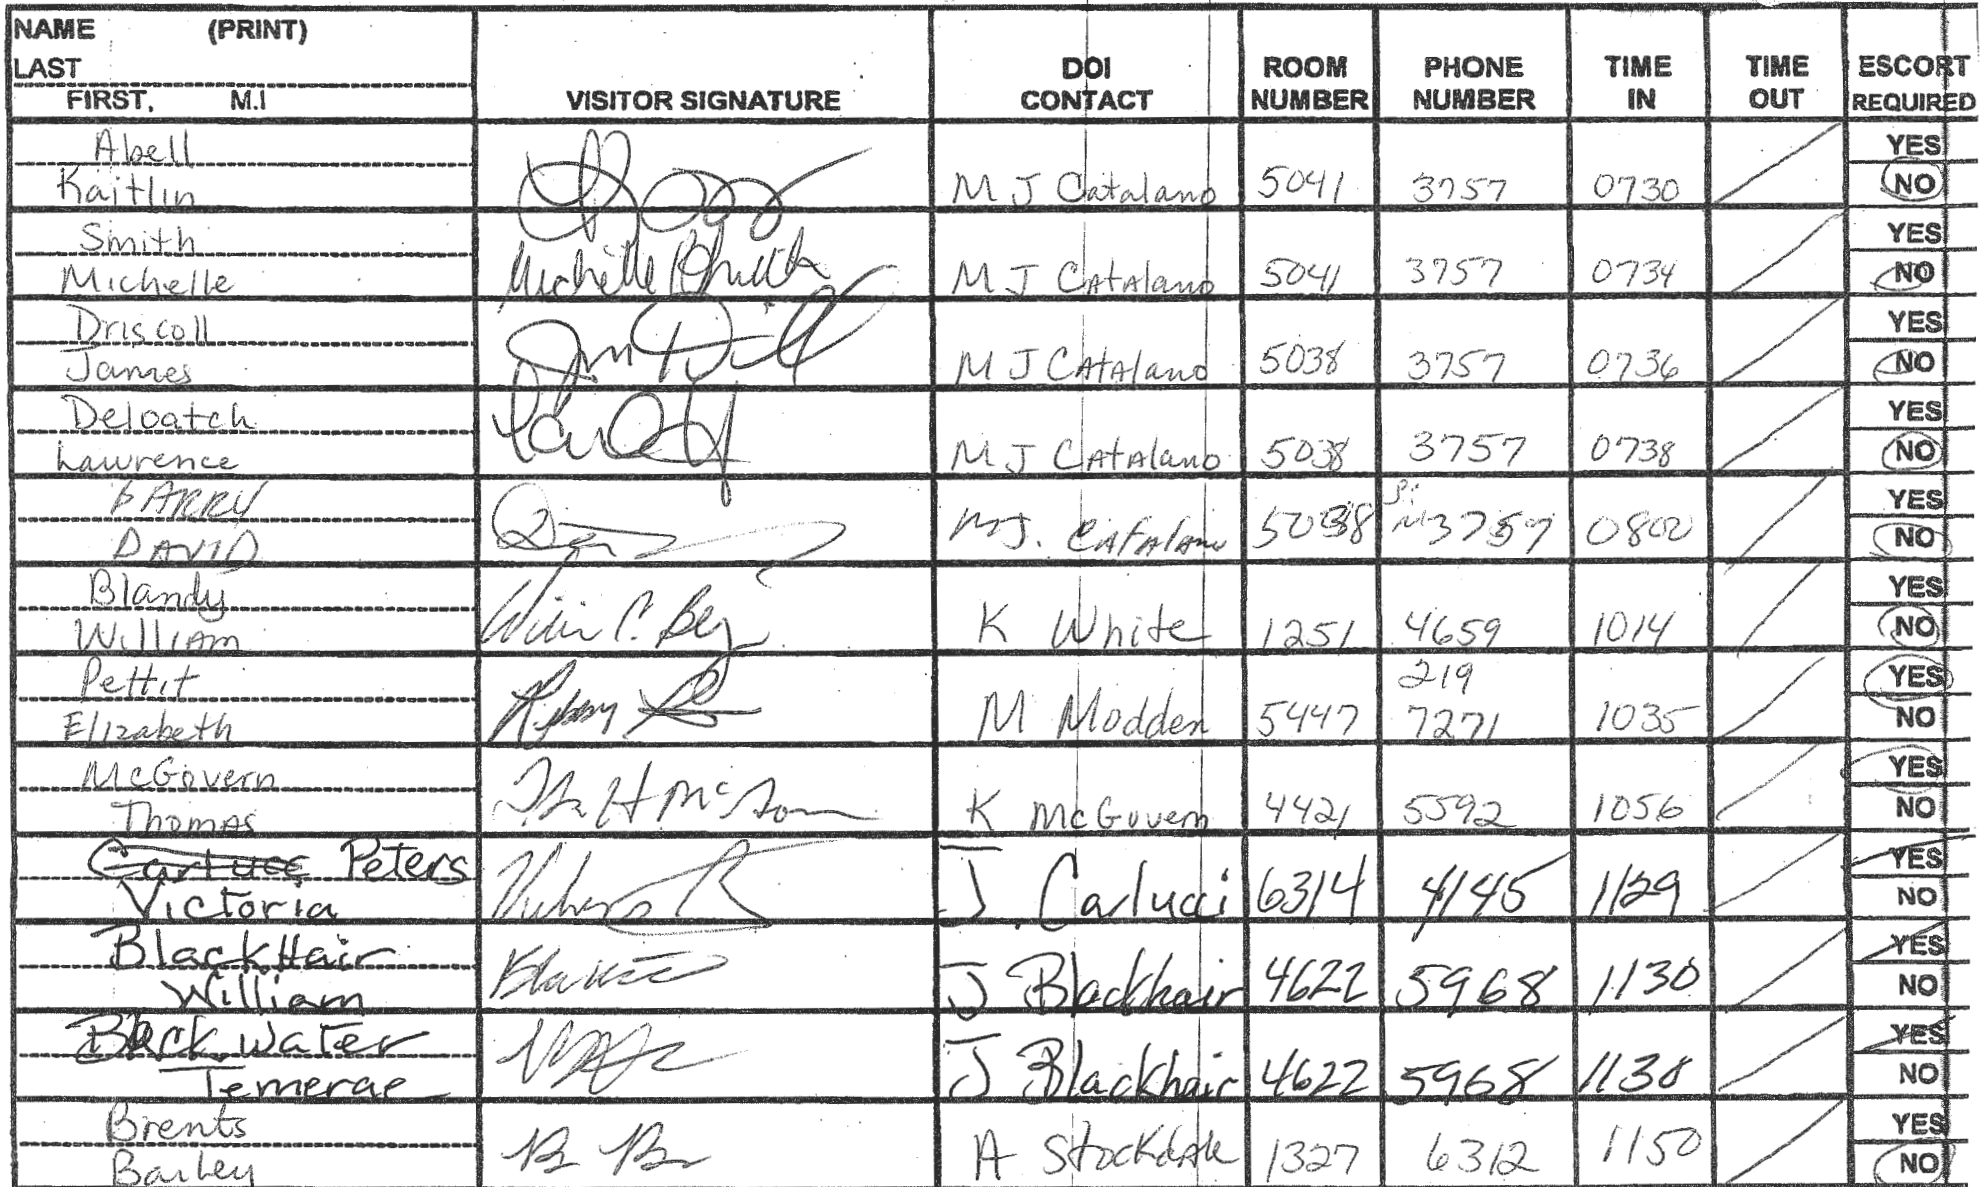 NAME (PRINT)
LAST
FIRST, M.I
VISITOR SIGNATURE
DOI CONTACT
ROOM NUMBER
PHONE NUMBER
TIME IN
TIME OUT
ESCORT REQUIRED
Abell YES
Kaitlin M J Catalano 5041 3757 0730 NO
Smith YES
Michelle M J CAtAlano 5041 3757 0734 NO
Driscoll YES
James M J CAtAlano 5038 3757 0736 NO
Deloatch YES
Lawrence M J CAtAlano 5038 3757 0738 NO
BARRY YES
DAVID MJ. CAtAlano 5038 3757 0800 NO
Blandy YES
William K White 1251 4659 1014 NO
Pettit 219 YES
Elizabeth M Madden 5447 7271 1035 NO
McGovern YES
Thomas K McGovern 4421 5592 1056 NO
Peters YES
Victoria J. Carlucci 6314 4145 1129 NO
BlackHair YES
William J Blackhair 4622 5968 1130 NO
Black water YES
Temerae J Blackhair 4622 5968 1130 NO
Brents YES
Bailey A Stockdale 1327 6312 1150 NO